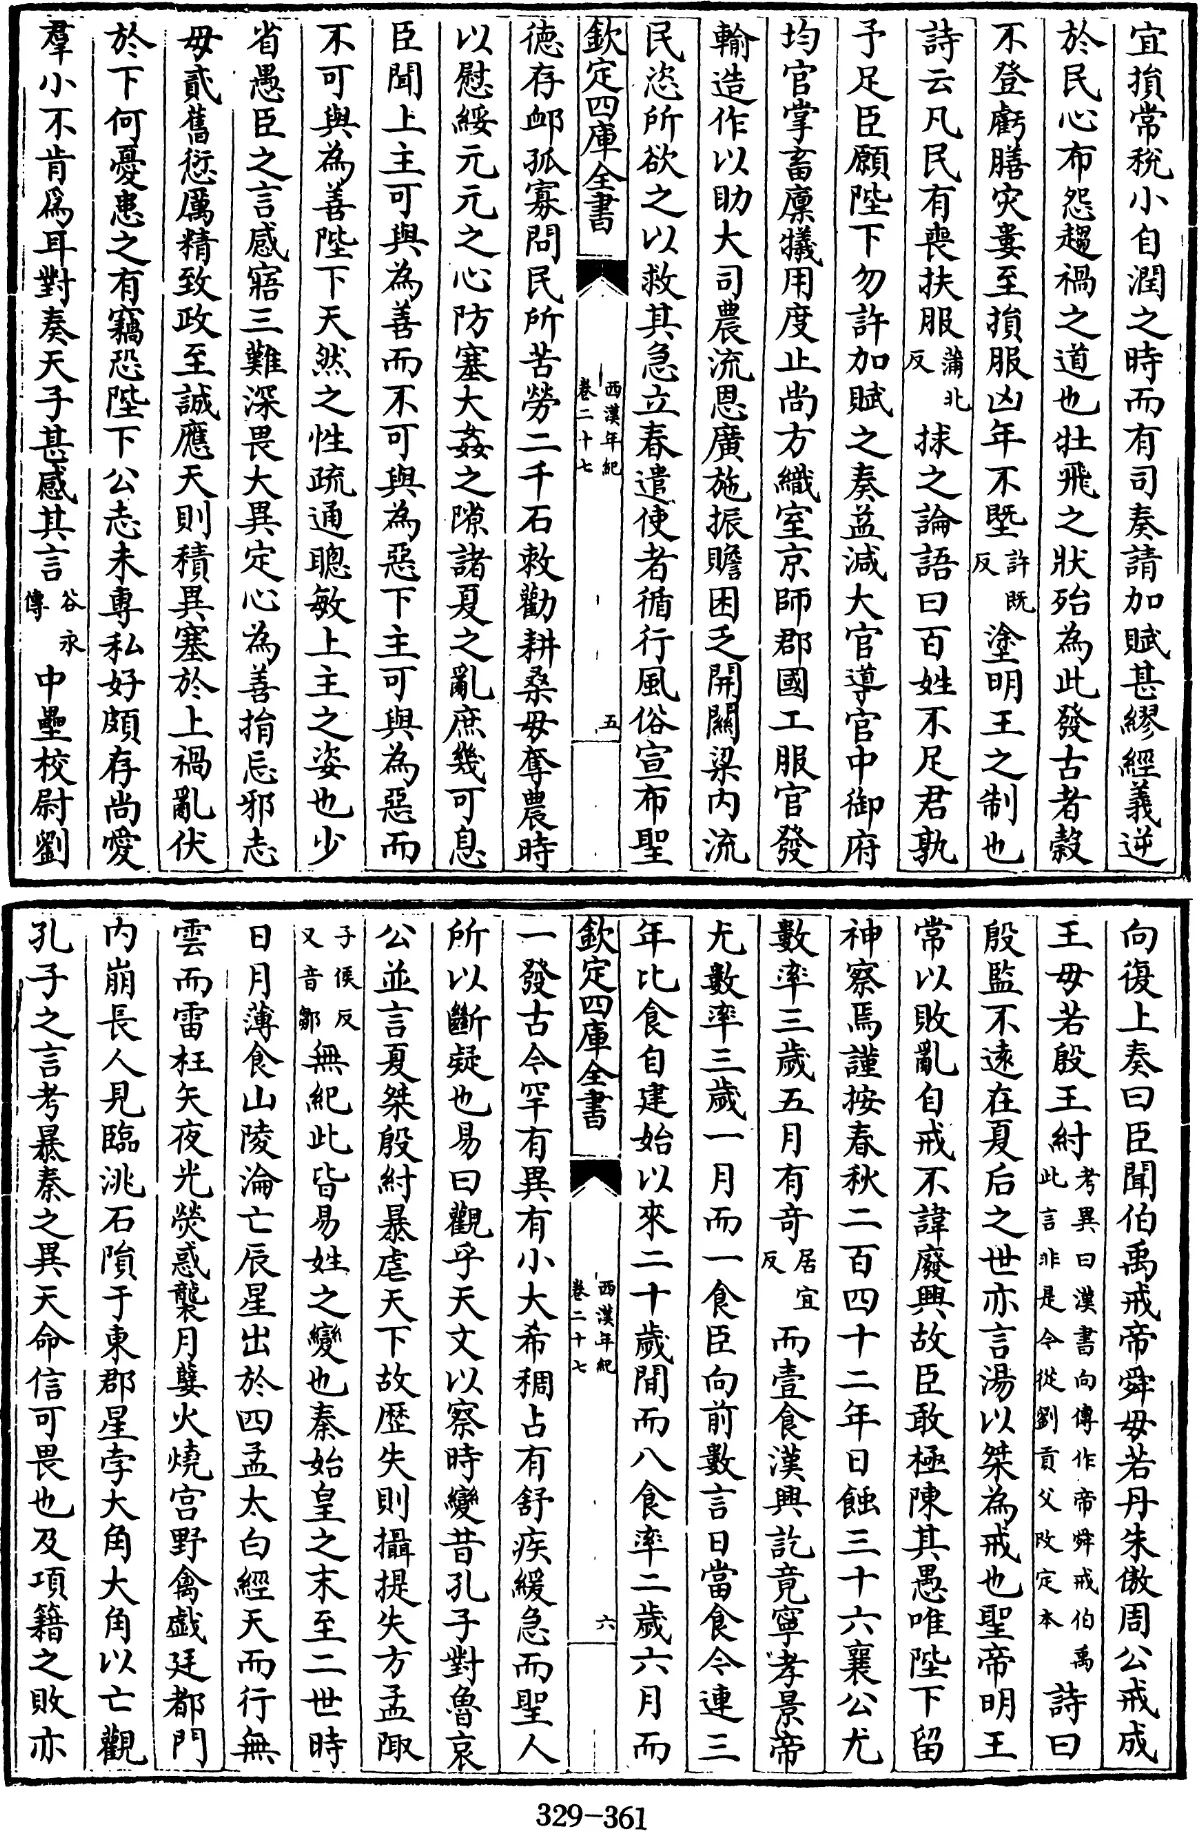 宜損常稅小自潤之時而有司奏請加賦甚繆經義逆
於民心布怨趨禍之道也牡飛之狀殆為此發古者穀
不登虧膳災婁至損服凶年不塈許既反塗明王之制也
詩云凡民有喪扶服蒲北反捄之論語曰百姓不足君孰
予足臣願陛下勿許加賦之奏益減大官導官中御府
均官掌畜廩犧用度止尚方織室京師郡國工服官發
輸造作以助大司農流恩廣施振贍困乏開關梁内流
民恣所欲之以救其急立春遣使者循行風俗宣布聖
欽定四庫全書
西漢年紀
卷二十七
五
德存邮孤寡問民所苦勞二千石敕勸耕桑毋奪農時
以慰綏元元之心防塞大姦之隙諸夏之亂庶幾可息
臣聞上主可與為善而不可與為惡下主可與為惡而
不可與為善陛下天然之性疏通聰敏上主之姿也少
省愚臣之言感寤三難深畏大異定心為善捐忘邪志
毋貳舊愆厲精致政至誠應天則積異塞於上禍亂伏
於下何憂患之有竊恐陛下公志未專私好頗存尚愛
羣小不肯爲耳對奏天子甚感其言谷永傳中壘校尉劉
向復上奏曰臣聞伯禹戒帝舜毋若丹朱傲周公戒成
王毋若殷王紂考異曰漢書向傳作帝舜戒伯禹此言非是今從劉貢父改定本詩曰
殷監不遠在夏后之世亦言湯以桀為戒也聖帝明王
常以敗亂自戒不諱廢興故臣敢極陳其愚唯陛下留
神察焉謹按春秋二百四十二年日蝕三十六襄公尤
數率三歲五月有奇居宜反而壹食漢興訖竟寧孝景帝
尤數率三歲一月而一食臣向前數言日當食今連三
年比食自建始以來二十歲間而八食率二歲六月而
欽定四庫全書
西漢年紀
卷二十七
六
一發古今罕有異有小大希稠占有舒疾緩急而聖人
所以斷疑也易曰觀乎天文以察時變昔孔子對魯哀
公並言夏桀殷紂暴虐天下故歷失則攝提失方孟陬
子侯反又音鄒無紀此皆易姓之變也秦始皇之末至二世時
日月薄食山陵淪亡辰星出於四孟太白經天而行無
雲而雷枉矢夜光熒惑襲月孽火燒宮野禽戲廷都門
内崩長人見臨洮石隕于東郡星孛大角大角以亡觀
孔子之言考暴秦之異天命信可畏也及項籍之敗亦
329-361